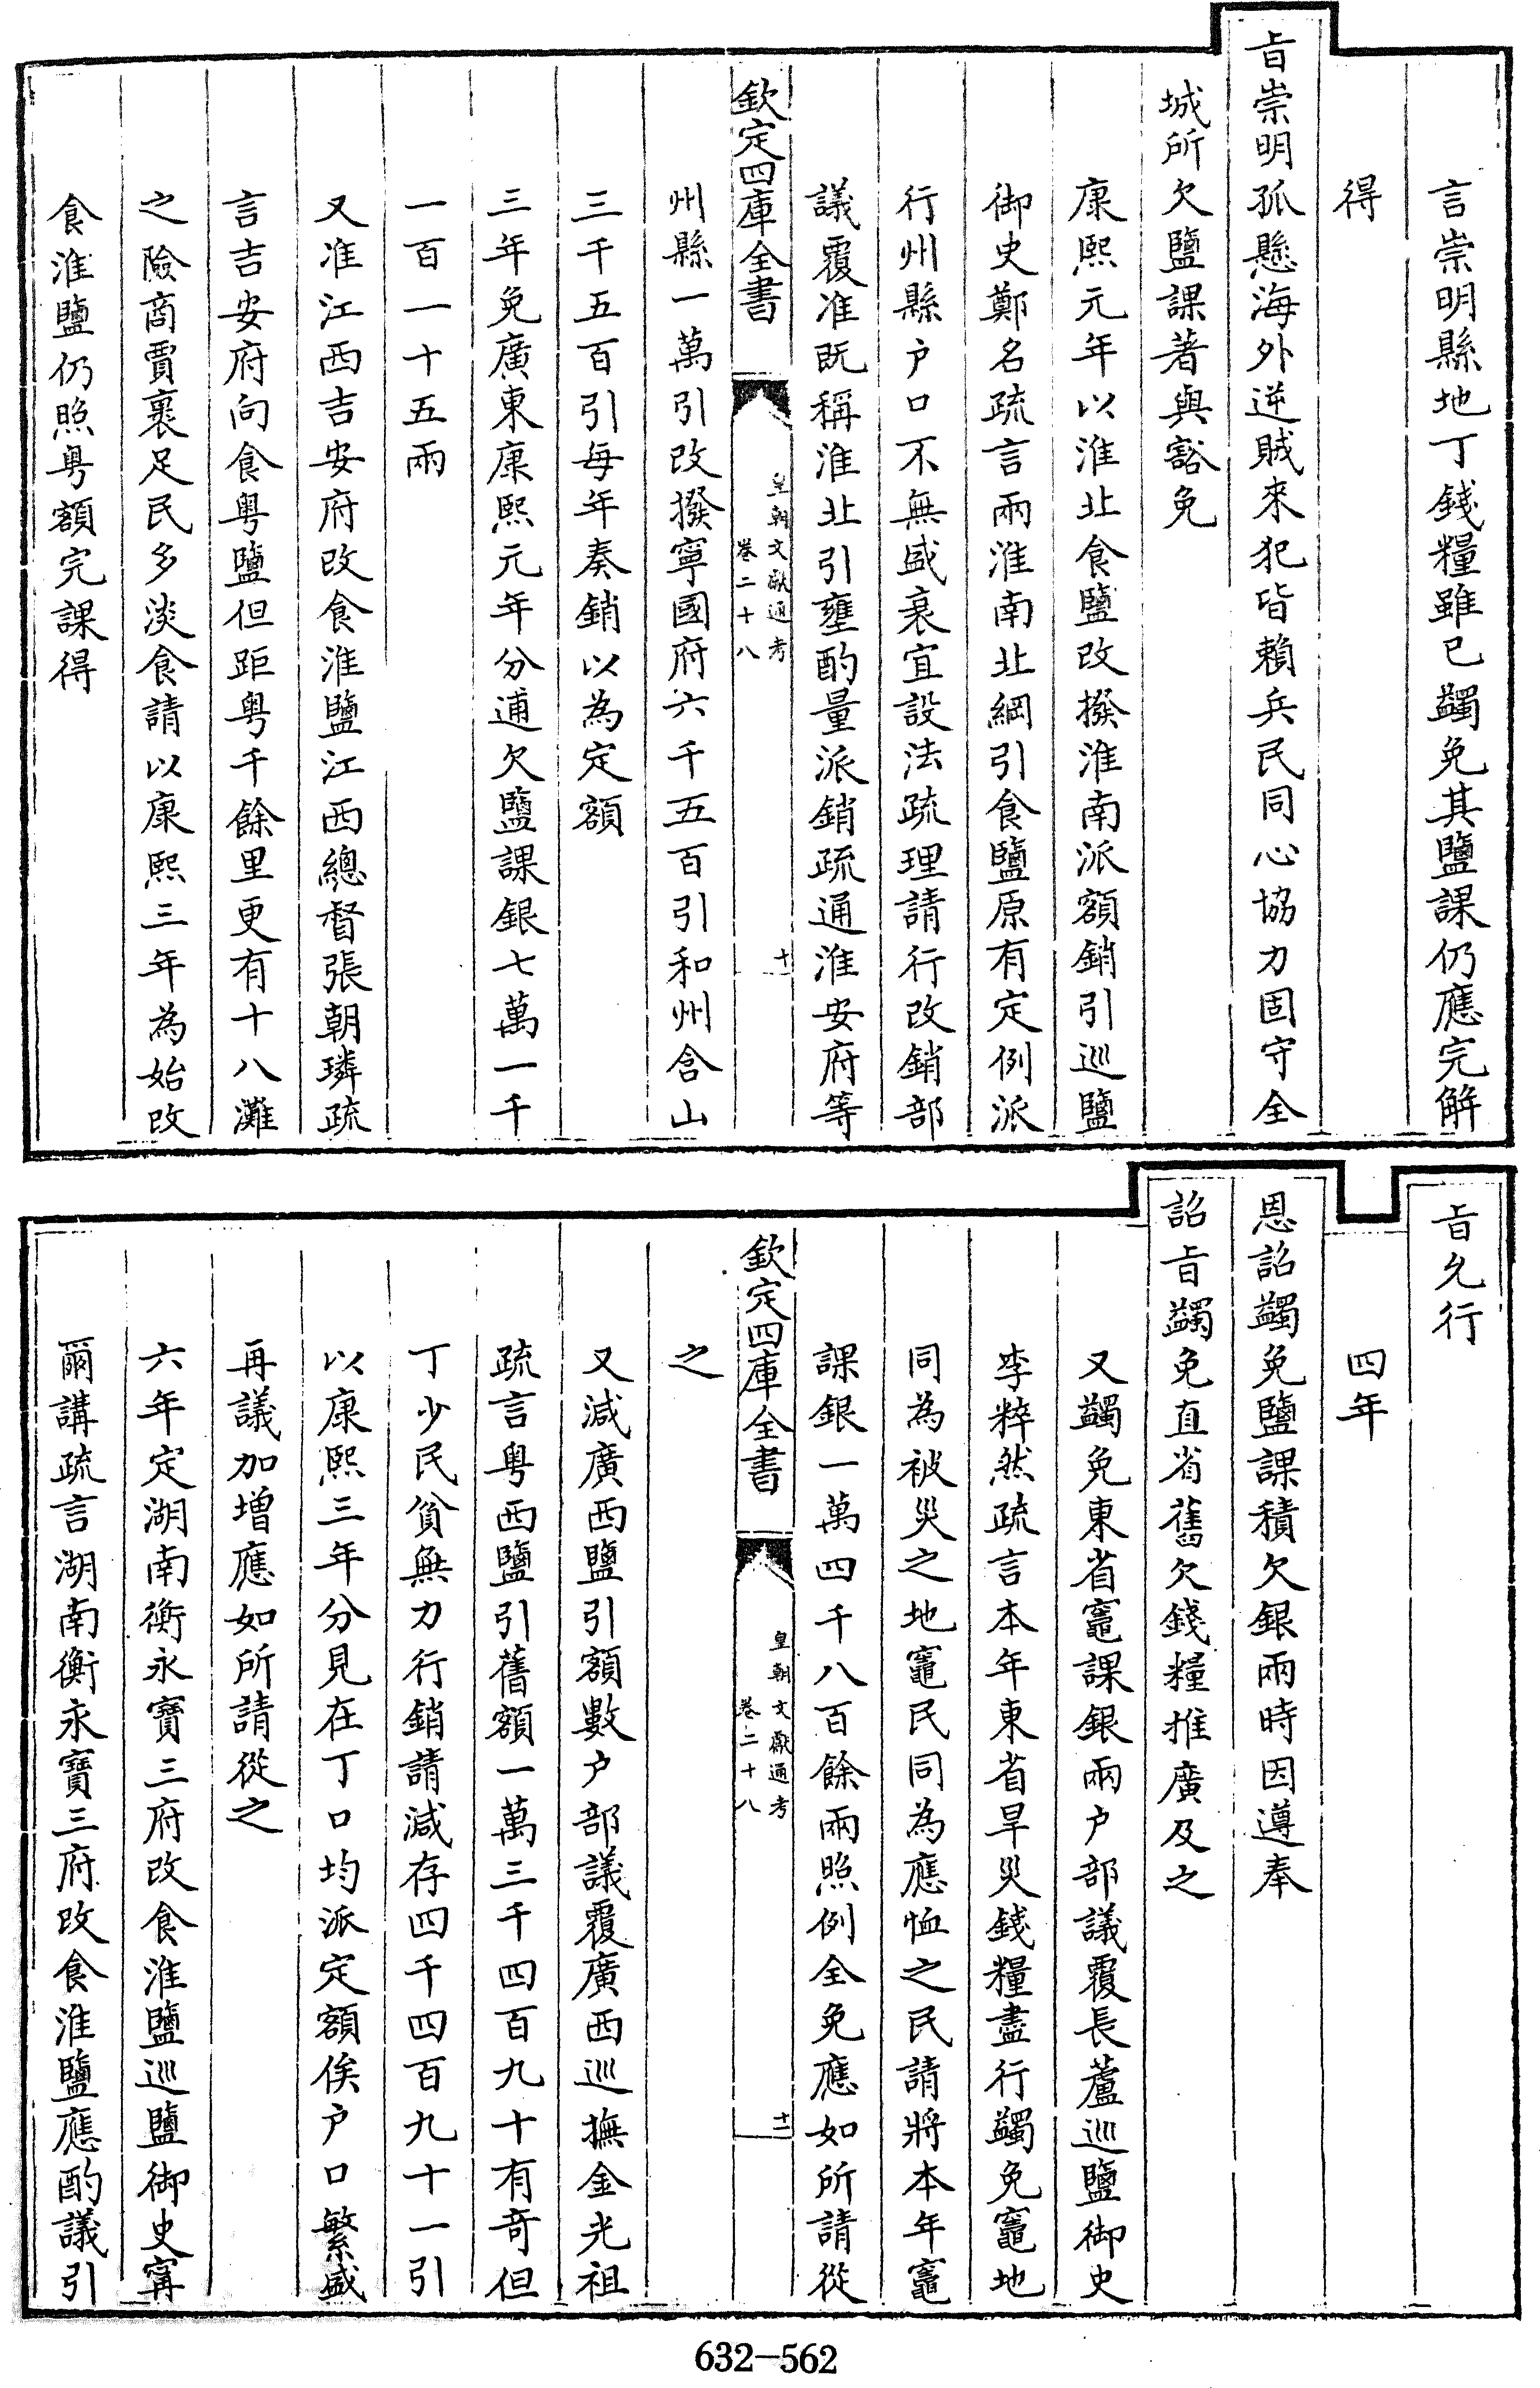 言崇明縣地丁錢糧雖已蠲免其鹽課仍應完解
得
旨崇明孤懸海外逆賊來犯皆賴兵民同心協力固守全
城所欠鹽課著與豁免
康熙元年以淮北食鹽改撥淮南派額銷引巡鹽
御史鄭名疏言兩淮南北綱引食鹽原有定例派
行州縣户口不無盛衰宜設法疏理請行改銷部
議覆准既稱淮北引壅酌量派銷疏通淮安府等
欽定四庫全書
皇朝文獻通考
卷二十八
十
州縣一萬引改撥寧國府六千五百引和州含山
三千五百引每年奏銷以為定額
三年免廣東康熙元年分逋欠鹽課銀七萬一千
一百一十五兩
又准江西吉安府改食淮鹽江西總督張朝璘疏
言吉安府向食粤鹽但距粤千餘里更有十八灘
之險商賈裹足民多淡食請以康熙三年為始改
食淮鹽仍照粤額完課得
旨允行
四年
恩詔蠲免鹽課積欠銀兩時因遵奉
詔旨蠲免直省舊欠錢糧推廣及之
又蠲免東省竈課銀兩户部議覆長蘆巡鹽御史
李粹然疏言本年東省旱災錢糧盡行蠲免竈地
同為被災之地竈民同為應恤之民請將本年竈
課銀一萬四千八百餘兩照例全免應如所請從
欽定四庫全書
皇朝文獻通考
卷二十八
十一
之
又減廣西鹽引額數户部議覆廣西巡撫金光祖
疏言粤西鹽引舊額一萬三千四百九十有奇但
丁少民貧無力行銷請減存四千四百九十一引
以康熙三年分見在丁口均派定額俟户口繁盛
再議加增應如所請從之
六年定湖南衡永寶三府改食淮鹽巡鹽御史甯
爾講疏言湖南衡永寶三府改食淮鹽應酌議引
632-562